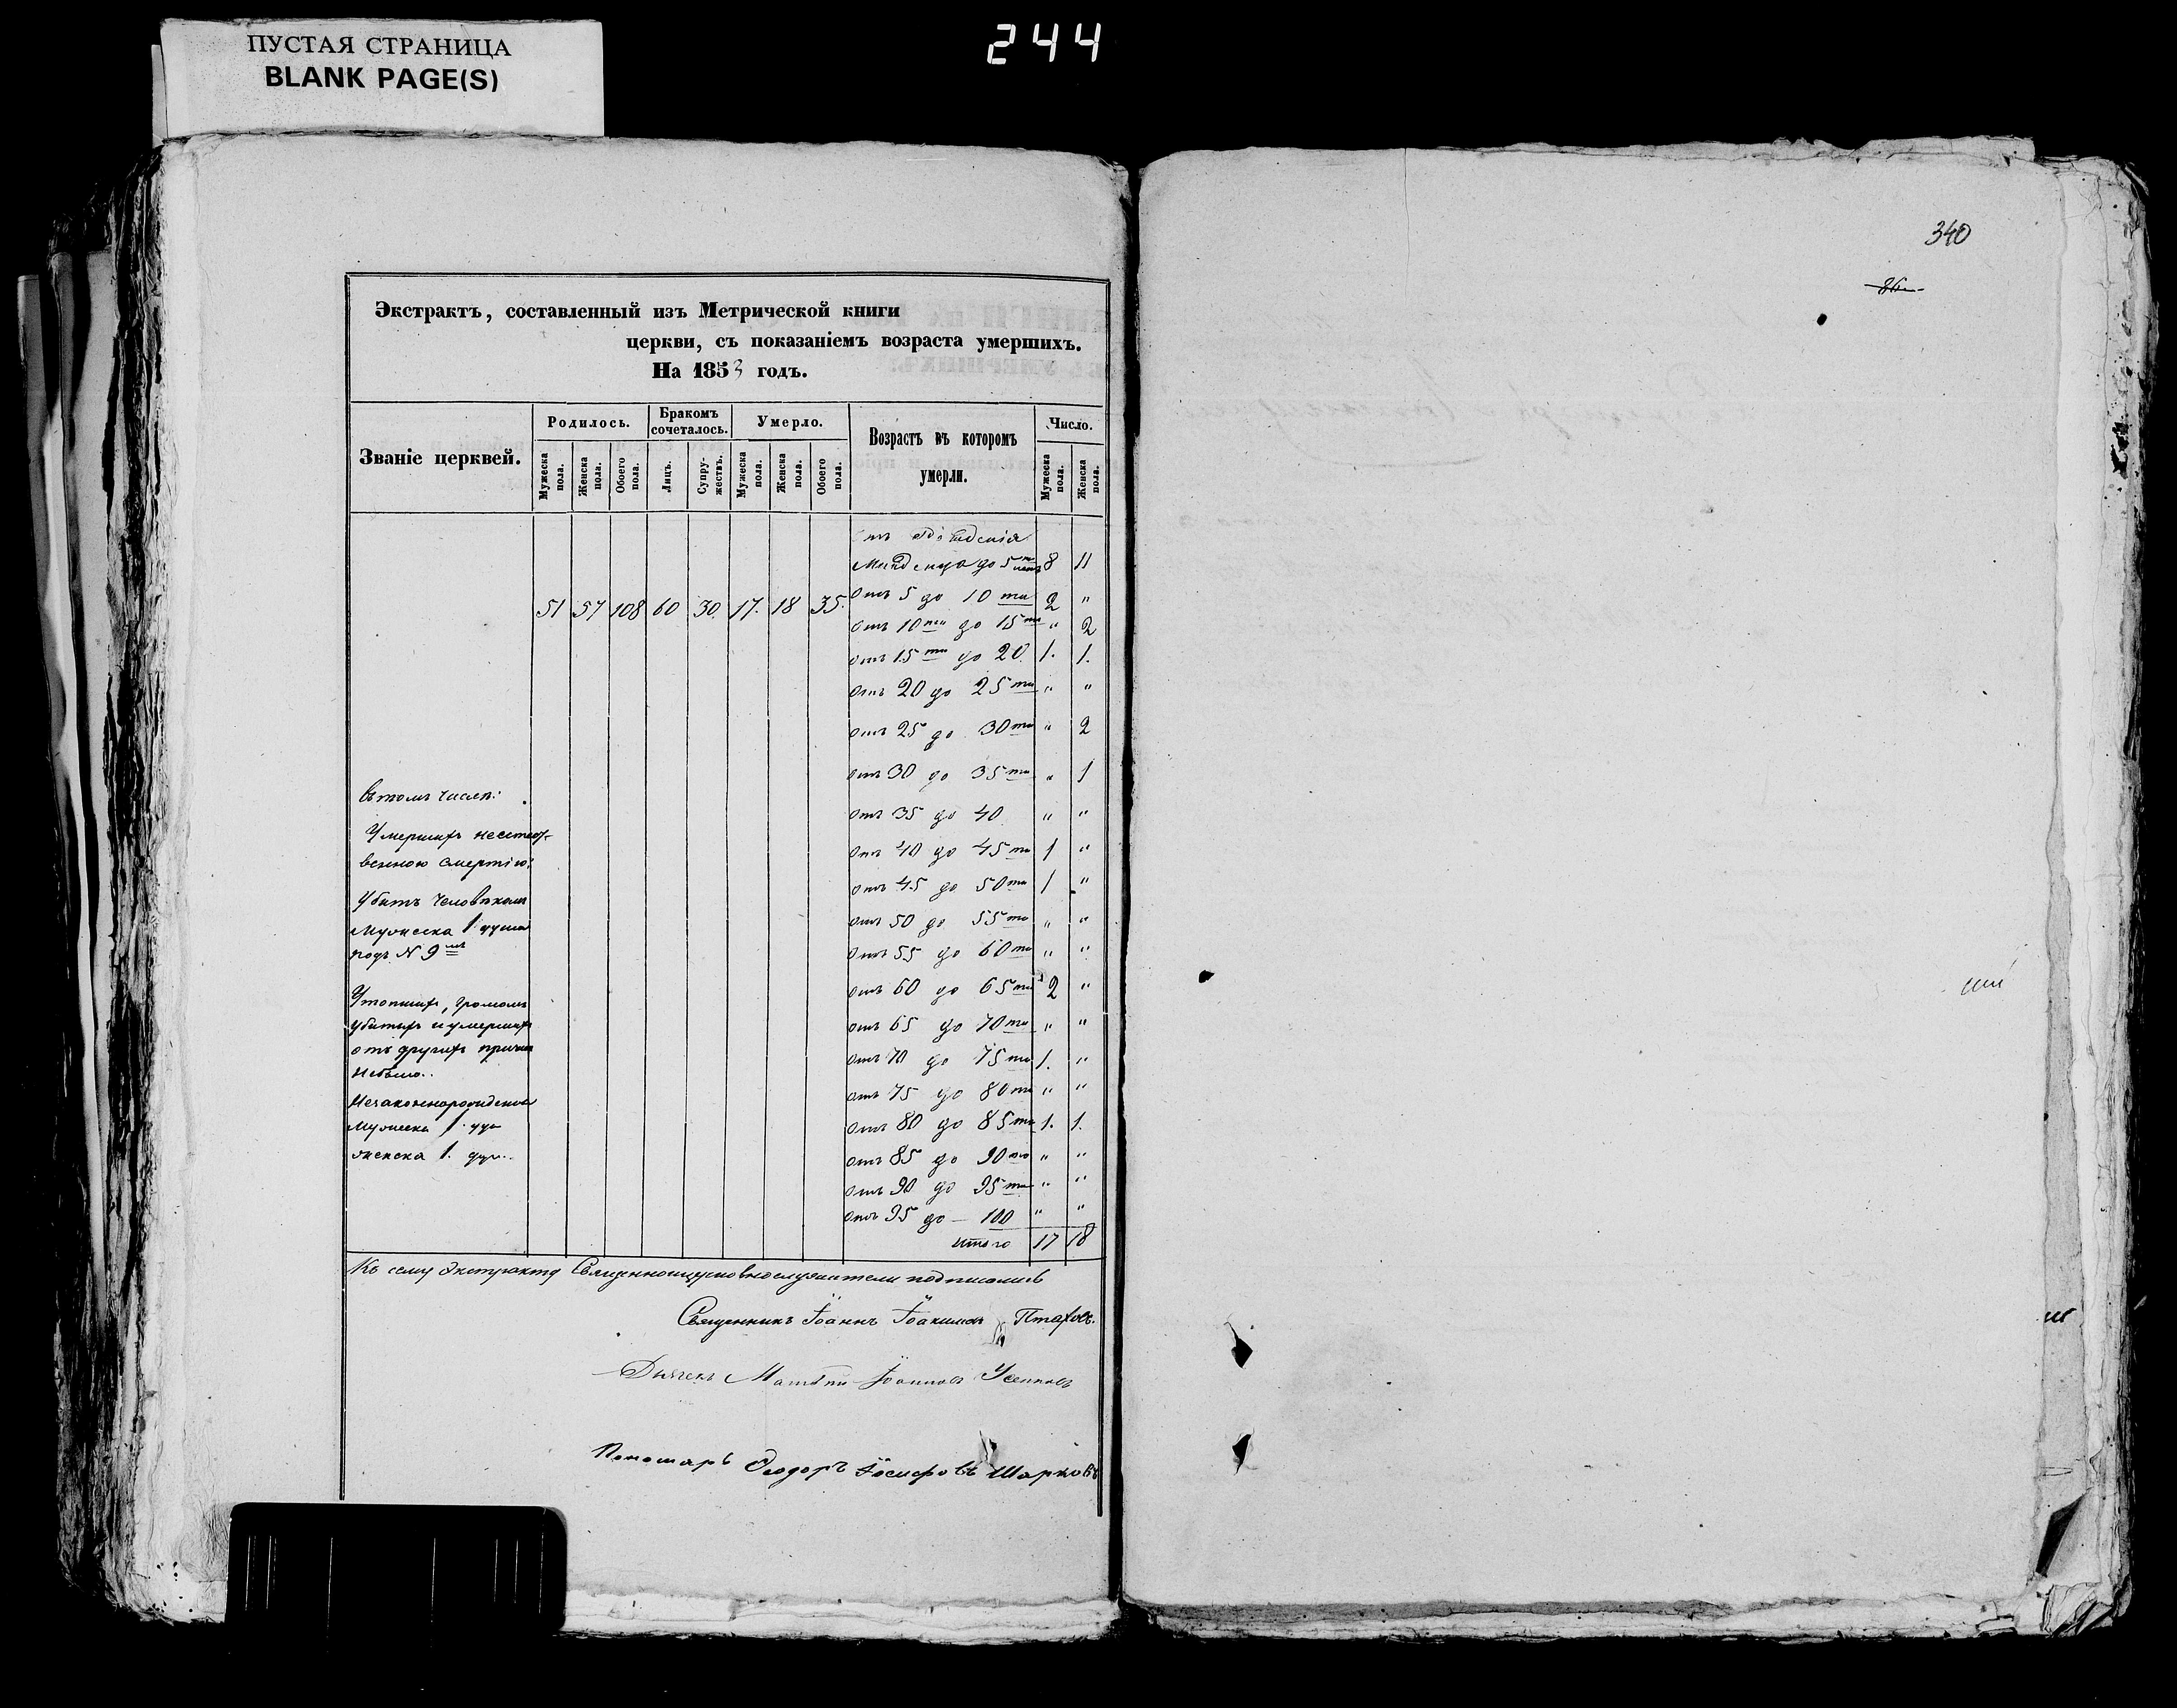 ПУСТАЯ СТРАНИЦА
BLANK PAGE(S)
244
340
Экстрактъ, составленный изъ Метрической книги
церкви, съ показаніемъ возраста умершихъ.
На 1853 годъ.
Званіе церквей.
Родилось.
Бракомъ сочеталось.
Умерло.
Возрастъ въ которомъ умерли.
Число.
Мужеска пола.
Женска пола.
Обоего пола.
Лицъ.
Супружествъ.
Мужеска пола.
Женска пола.
Обоего пола.
Мужеска пола.
Женска пола.
51 57 108 60 30. 17. 18 35.
младенца до 5 8 11
Отъ 5 до 10 ти 2 "
Отъ 10 ти до 15 ти " 2
отъ 15 ти до 20 1. 1.
Отъ 20 до 25 ти " "
Отъ 25 до 30 ти " 2
Отъ 30 до 35 ти " 1
Отъ 35 до 40 " "
Отъ 40 до 45 ти 1 "
Отъ 45 до 50 ти 1 "
Отъ 50 до 55 ти " "
Отъ 55 до 60 ти " "
отъ 60 до 65 ти 2 "
отъ 65 до 70 ти " "
Отъ 70 до 75 ти 1. "
отъ 75 до 80 ти " "
Отъ 80 до 85 ти 1. 1.
отъ 85 до 90 то " "
отъ 90 до 95 ти " "
Отъ 95 до — 100 " "
Итого 17 18
Въ томъ числѣ:
Умершихъ неестест-
венною смертію:
Убитъ человѣкомъ
Мужеска 1 душа
подъ N 9 мъ
Утопшихъ, громомъ
убитыхъ и умершихъ
отъ другихъ причинъ
небыло..
Незаконнорожденных
Мужеска 1. душ
женска 1. душ..
Къ сему Экстракту Священноицерковнослужители подписались
Священникъ Іоаннъ Іоакимовъ Птаховъ.
Дьячекъ Матвѣй Іоанновъ
Пономарь Ѳеодоръ Іосифовъ Шарковъ